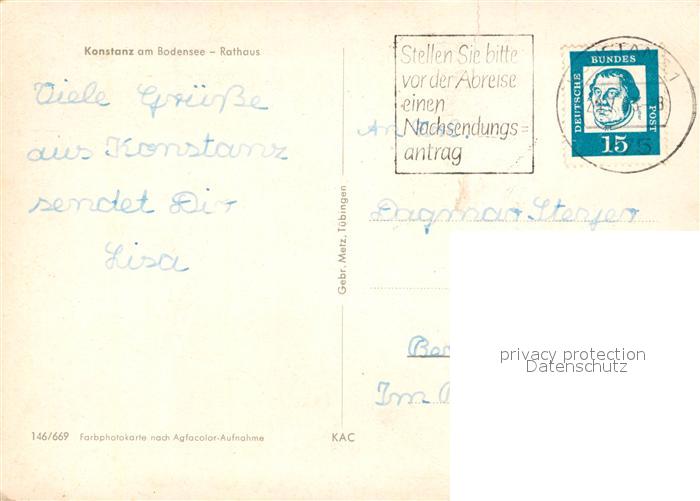 Konstanz am Bodensee – Rathaus
Viele Grüße
aus Konstanz
sendet Dir
Lisa
146/669 Farbphotokarte nach Agfacolor-Aufnahme
KAC
Gebr. Metz, Tübingen
Stellen Sie bitte
vor der Abreise
einen
Nachsendungs=
antrag
DEUTSCHE
BUNDES
POST
15
Dagmar
Im
privacy protection
Datenschutz